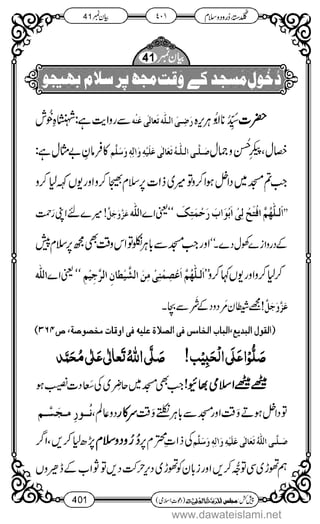 بیان نمبر 41 ٤٠١ گلدستۂ درود و سلام
بیان نمبر 41
دُخولِ مَسجد کے وقت مجھ پر سلام بھیجو
حضرت سَیِّدُنا ابو ہریرہ رَضِیَ اللہُ تَعَالٰی عَنْہُ سے روایت ہے: شہنشاہِ خوش
خصال، پیکرِ حُسن و جمال صَلَّی اللہُ تَعَالٰی عَلَیْہِ وَاٰلِہٖ وَسَلَّم کا فرمانِ بے مثال ہے:
جب تم مسجد میں داخل ہوا کرو تو میری ذات پر سلام بھیجا کرو اور یوں کہہ لیا کرو
”اَللّٰھُمَّ افْتَحْ لِیْ اَبْوَابَ رَحْمَتِکَ“ یعنی اے اللہ عَزَّوَجَلَّ! میرے لئے اپنی رحمت
کے دروازے کھول دے۔“ اور جب مسجد سے باہر نکلو تو اس وقت بھی مجھ پر سلام پیش
کرلیا کرو اور یوں کہا کرو ”اَللّٰھُمَّ اعْصِمْنِیْ مِنَ الشَّیْطَانِ الرَّجِیْمِ“ یعنی اے اللہ
عَزَّوَجَلَّ! مجھے شیطان مردود کے شر سے بچا۔
(القول البدیع،الباب الخامس فی الصلاۃ علیہ فی اوقات مخصوصۃ، ص٣٦٤)
صَلُّوْا عَلَی الْحَبِیْب! صَلَّی اللہُ تَعَالٰی عَلٰی مُحَمَّد
میٹھے میٹھے اسلامی بھائیو! جب بھی مسجد میں حاضِری کی سعادت نصیب ہو
تو داخل ہوتے وقت اور مسجد سے باہر نکلتے وقت سرکارِ دو عالم، نُورِ مُجَسَّم
صَلَّی اللہُ تَعَالٰی عَلَیْہِ وَاٰلِہٖ وَسَلَّم کی ذاتِ محترم پر دُرُود و سلام پڑھ لیا کریں، اگر
ہم تھوڑی سی توجُّہ کریں اور زبان کو تھوڑی دیر حرکت دیں تو ثواب کے ڈھیروں
401 مجلس المدینۃ العلمیۃ (دعوتِ اسلامی)
www.dawateislami.net